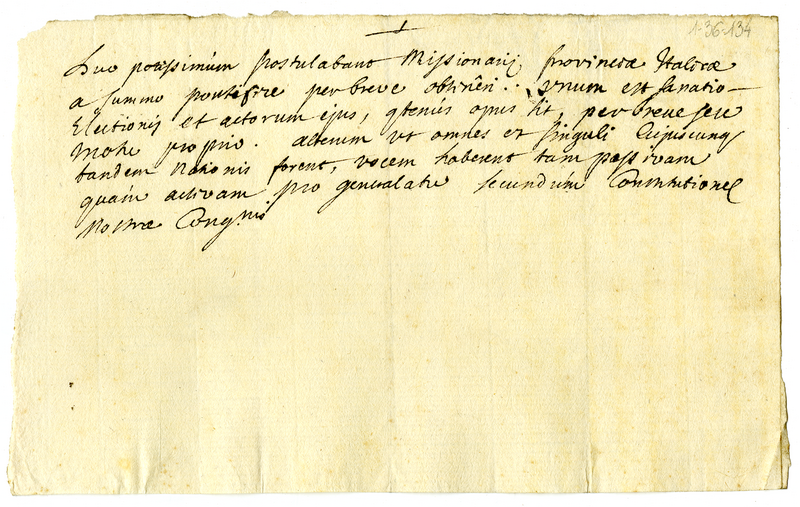 1-36-134
Duo potissimum postulabant Missionarij provinciæ Italicæ
a summo pontifice per breve obtineri.. unum est sanatio-
Electionis et actorum ejus, qtenus opus sit, per breve seu
Motu proprio. alterum ut omnes et singuli cujuscunq
tandem Nationis forent, vocem haberent tam passivam
quam activam pro generalatu secundum Constitutiones
Nostræ Cong.nis